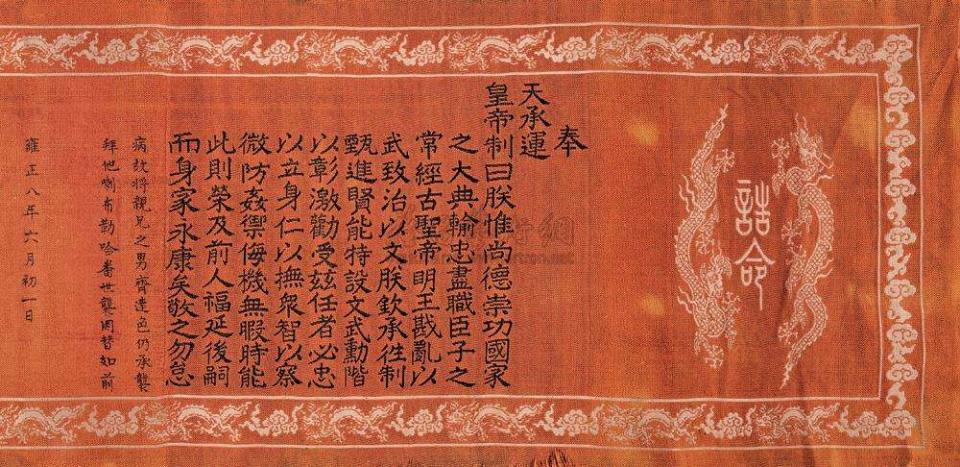 誥命
奉
天承運
皇帝制曰朕惟尚德崇功國家
之大典輸忠盡職臣子之
常經古聖帝明王戡亂以
武致治以文朕欽承徃制
甄進賢能特設文武勳階
以彰激勸受茲任者必忠
以立身仁以撫衆智以察
微防姦禦侮機無暇時能
此則榮及前人福延後嗣
而身家永康矣敬之勿怠
病故將親兄之男齊達色仍承襲
拜他喇布勒哈番世襲罔替如前
雍正八年六月初一日